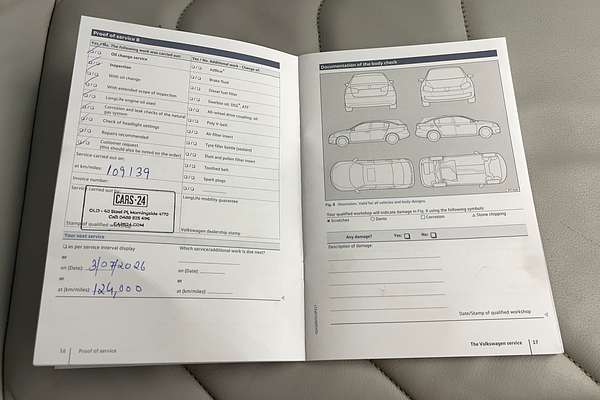 Proof of service 8
Yes / No The following work was carried out:
Oil change service
Inspection
With oil change
With extended scope of inspection
LongLife engine oil used
Corrosion and leak checks of the natural
gas system
Check of headlight settings
Repairs recommended
Customer request
(this should also be noted on the order)
Service carried out on:
at km/miles: 109139
Invoice number:
Service carried out
CARS·24
OLD - 40 Steel Pl, Morningside 4170
Stamp of qualified
Your next service
as per service interval display
or
on (Date): 3/07/2026
or
at (km/miles): 124,000
16 | Proof of service
Yes / No Additional work - Change of:
AdBlue®
Brake fluid
Diesel fuel filter
Gearbox oil: DSG®, ATF
All-wheel drive coupling: oil
Poly V-belt
Air filter insert
Tyre filler bottle (sealant)
Dust and pollen filter insert
Toothed belt
Spark plugs
LongLife mobility guarantee
Volkswagen dealership stamp
Which service/additional work is due next?
on (Date):
or
at (km/miles):
Documentation of the body check
Fig. 8 Illustration: Valid for all vehicles and body designs.
Your qualified workshop will indicate damage in Fig. 8 using the following symbols
Scratches
Dents
Corrosion
Stone chipping
Any damage? Yes: No:
Description of damage:
Date/Stamp of qualified workshop
The Volkswagen service | 17